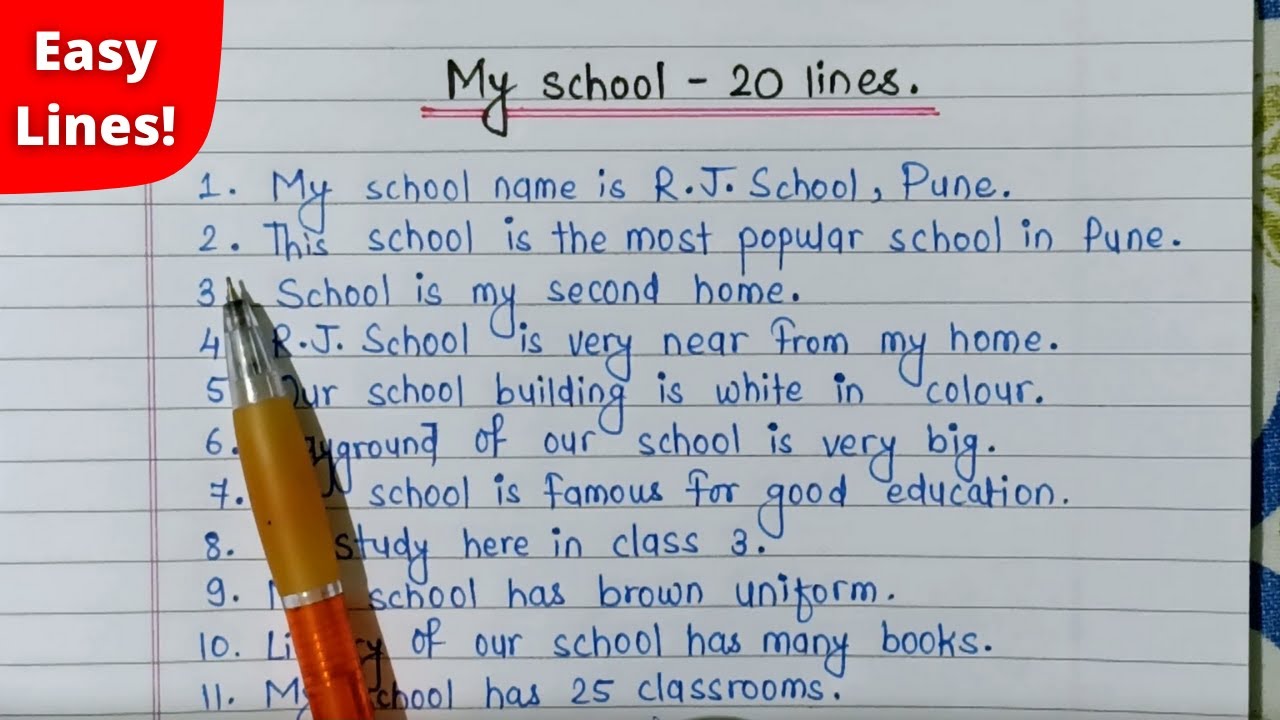 Easy
Lines!
My school - 20 lines.
1. My school name is R.J. School, Pune.
2. This school is the most popular school in Pune.
3. School is my second home.
4 R.J. School is very near from my home.
5 Our school building is white in colour.
6. of our school is very big.
7. school is famous for good education.
8. study here in class 3.
9. school has brown uniform.
10. of our school has many books.
11. My school has 25 classrooms.